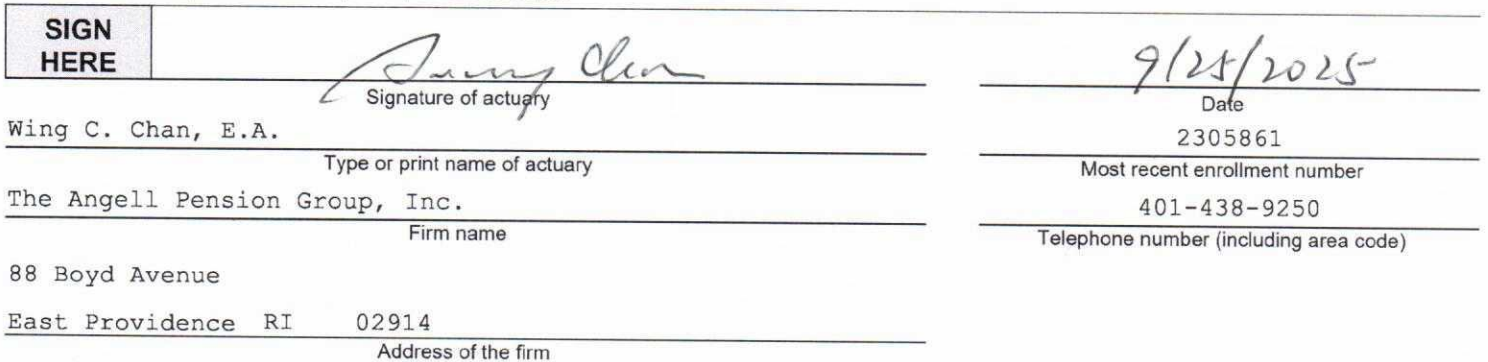 SIGN
HERE
Signature of actuary
9/25/2025
Date
Wing C. Chan, E.A.
2305861
Type or print name of actuary
Most recent enrollment number
The Angell Pension Group, Inc.
401-438-9250
Firm name
Telephone number (including area code)
88 Boyd Avenue
East Providence RI 02914
Address of the firm